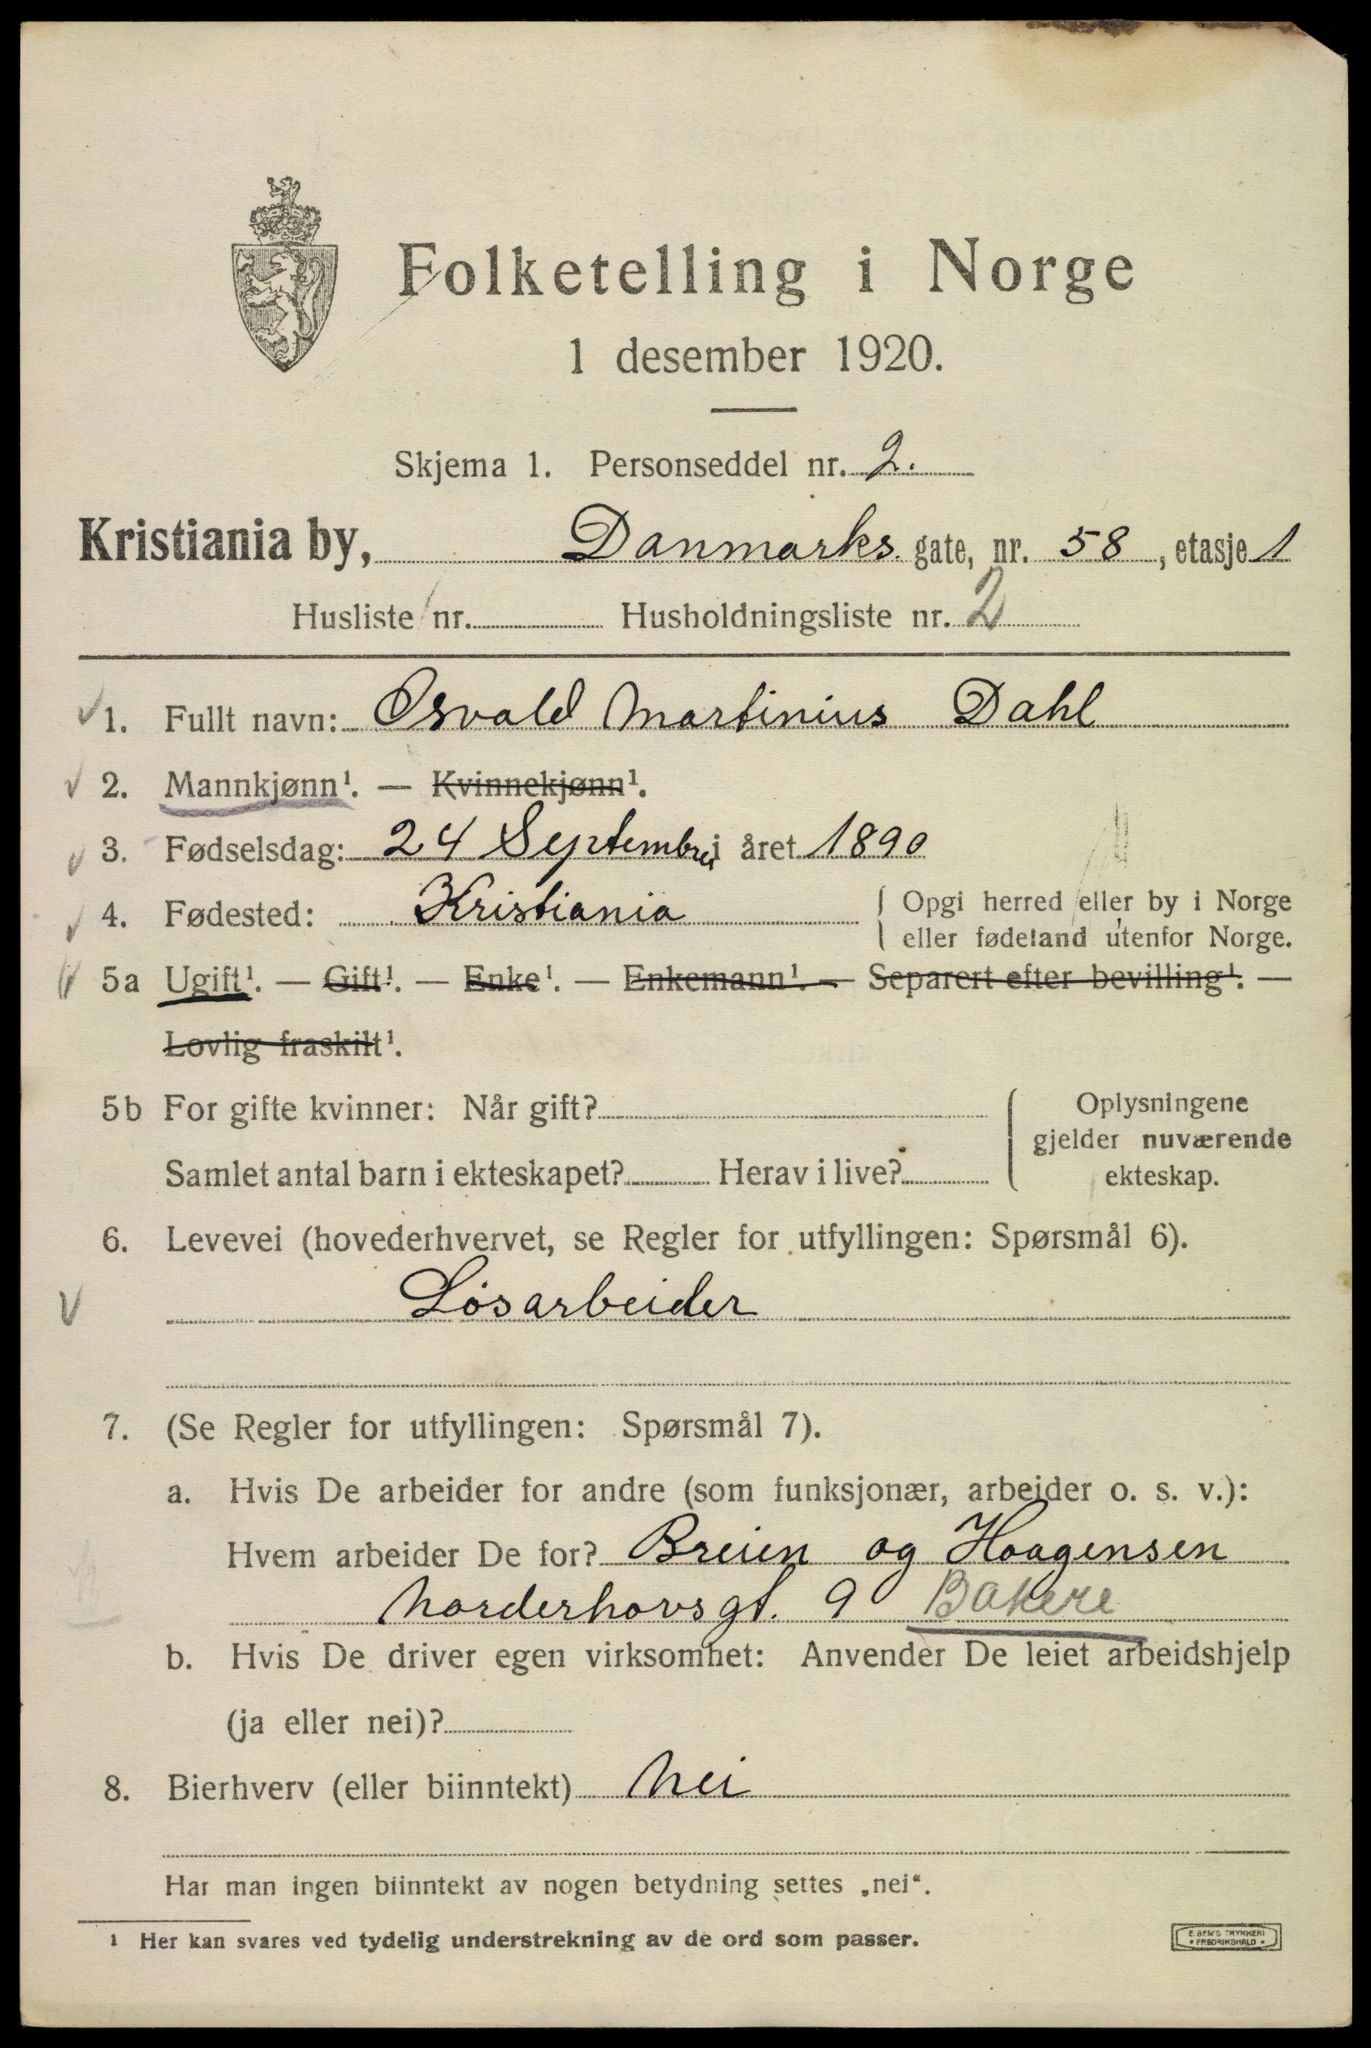 Folketelling i Norge
1 desember 1920.
Skjema 1. Personseddel nr. 2.
Kristiania by, Danmarks gate, nr. 58, etasje 1
Husliste nr. Husholdningsliste nr. 2
1. Fullt navn: Osvald Martinius Dahl
2. Mannkjønn¹. — Kvinnekjønn¹.
3. Fødselsdag: 24 September i året 1890
4. Fødested: Kristiania { Opgi herred eller by i Norge
eller fødeland utenfor Norge.
5a Ugift¹. — Gift¹. — Enke¹. — Enkemann¹. — Separert efter bevilling¹. —
Lovlig fraskilt¹.
5b For gifte kvinner: Når gift? { Oplysningene
gjelder nuværende
Samlet antal barn i ekteskapet? Herav i live? ekteskap.
6. Levevei (hovederhvervet, se Regler for utfyllingen: Spørsmål 6).
Løsarbeider
7. (Se Regler for utfyllingen: Spørsmål 7).
a. Hvis De arbeider for andre (som funksjonær, arbeider o. s. v.):
Hvem arbeider De for? Breien og Haagensen
Norderhovsgt. 9 Bakere
b. Hvis De driver egen virksomhet: Anvender De leiet arbeidshjelp
(ja eller nei)?
8. Bierhverv (eller biinntekt) Nei
Har man ingen biinntekt av nogen betydning settes „nei“.
¹ Her kan svares ved tydelig understrekning av de ord som passer.
E. SEM'S TRYKKERI
• FREDRIKSHALD •